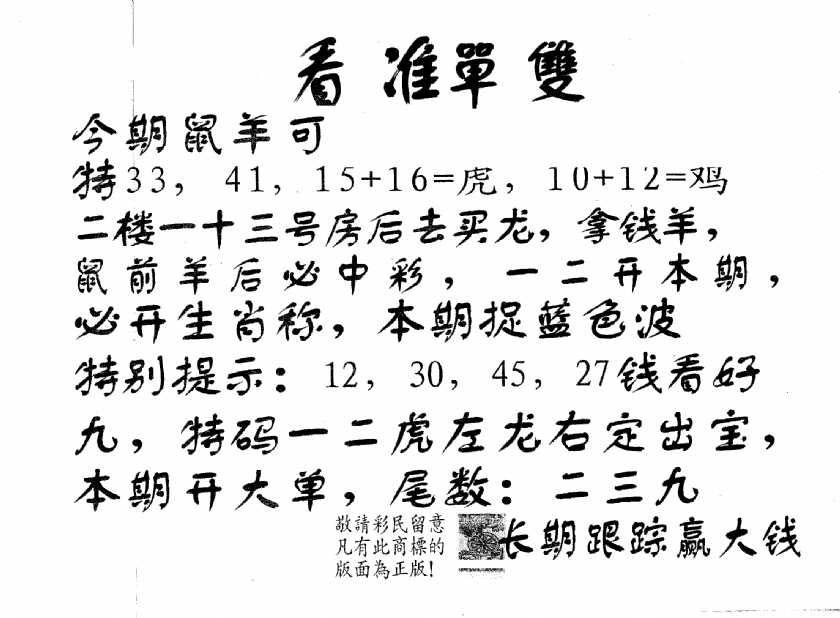 看准單雙
今期鼠羊可
特33，41，15+16=虎，10+12=鸡
二楼一十三号房后去买龙，拿钱羊，
鼠前羊后必中彩，一二开本期，
必开生肖称，本期捉蓝色波
特别提示：12，30，45，27钱看好
九，特码一二虎左龙右定出宝，
本期开大单，尾数：二三九
敬請彩民留意
凡有此商標的
版面為正版！
长期跟踪赢大钱